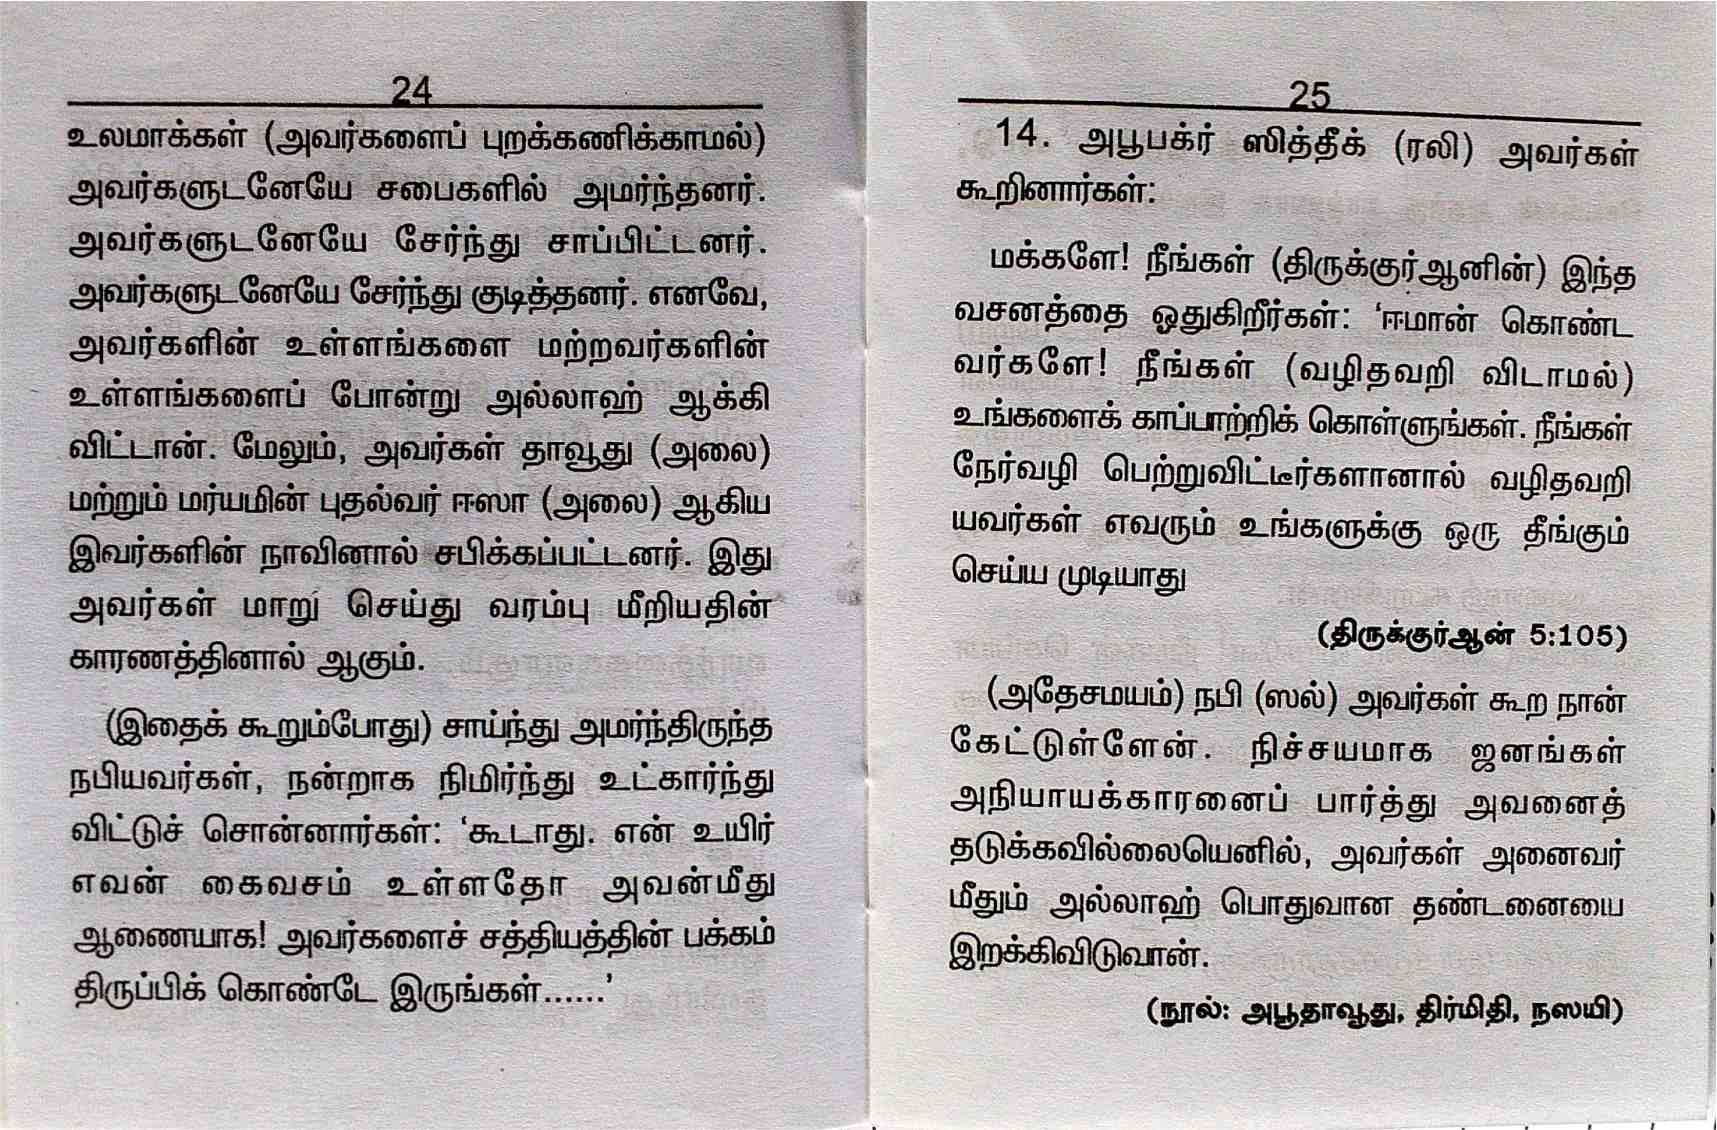 24
உலமாக்கள் (அவர்களைப் புறக்கணிக்காமல்)
அவர்களுடனேயே சபைகளில் அமர்ந்தனர்.
அவர்களுடனேயே சேர்ந்து சாப்பிட்டனர்.
அவர்களுடனேயே சேர்ந்து குடித்தனர். எனவே,
அவர்களின் உள்ளங்களை மற்றவர்களின்
உள்ளங்களைப் போன்று அல்லாஹ் ஆக்கி
விட்டான். மேலும், அவர்கள் தாவூது (அலை)
மற்றும் மர்யமின் புதல்வர் ஈஸா (அலை) ஆகிய
இவர்களின் நாவினால் சபிக்கப்பட்டனர். இது
அவர்கள் மாறு செய்து வரம்பு மீறியதின்
காரணத்தினால் ஆகும்.
(இதைக் கூறும்போது) சாய்ந்து அமர்ந்திருந்த
நபியவர்கள், நன்றாக நிமிர்ந்து உட்கார்ந்து
விட்டுச் சொன்னார்கள்: 'கூடாது. என் உயிர்
எவன் கைவசம் உள்ளதோ அவன்மீது
ஆணையாக! அவர்களைச் சத்தியத்தின் பக்கம்
திருப்பிக் கொண்டே இருங்கள்......'
25
14. அபூபக்ர் ஸித்தீக் (ரலி) அவர்கள்
கூறினார்கள்:
மக்களே! நீங்கள் (திருக்குர்ஆனின்) இந்த
வசனத்தை ஓதுகிறீர்கள்: 'ஈமான் கொண்ட
வர்களே! நீங்கள் (வழிதவறி விடாமல்)
உங்களைக் காப்பாற்றிக் கொள்ளுங்கள். நீங்கள்
நேர்வழி பெற்றுவிட்டீர்களானால் வழிதவறி
யவர்கள் எவரும் உங்களுக்கு ஒரு தீங்கும்
செய்ய முடியாது
(திருக்குர்ஆன் 5:105)
(அதேசமயம்) நபி (ஸல்) அவர்கள் கூற நான்
கேட்டுள்ளேன். நிச்சயமாக ஜனங்கள்
அநியாயக்காரனைப் பார்த்து அவனைத்
தடுக்கவில்லையெனில், அவர்கள் அனைவர்
மீதும் அல்லாஹ் பொதுவான தண்டனையை
இறக்கிவிடுவான்.
(நூல்: அபூதாவூது, திர்மிதி, நஸயி)